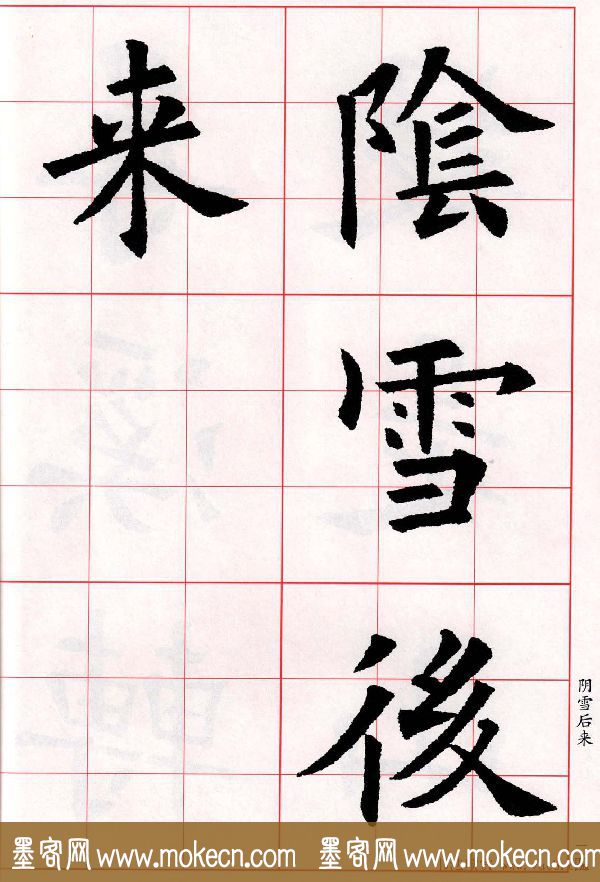 陰雪後
来
阴雪后来
墨客网 www.mokecn.com 墨客网 www.mokecn.com